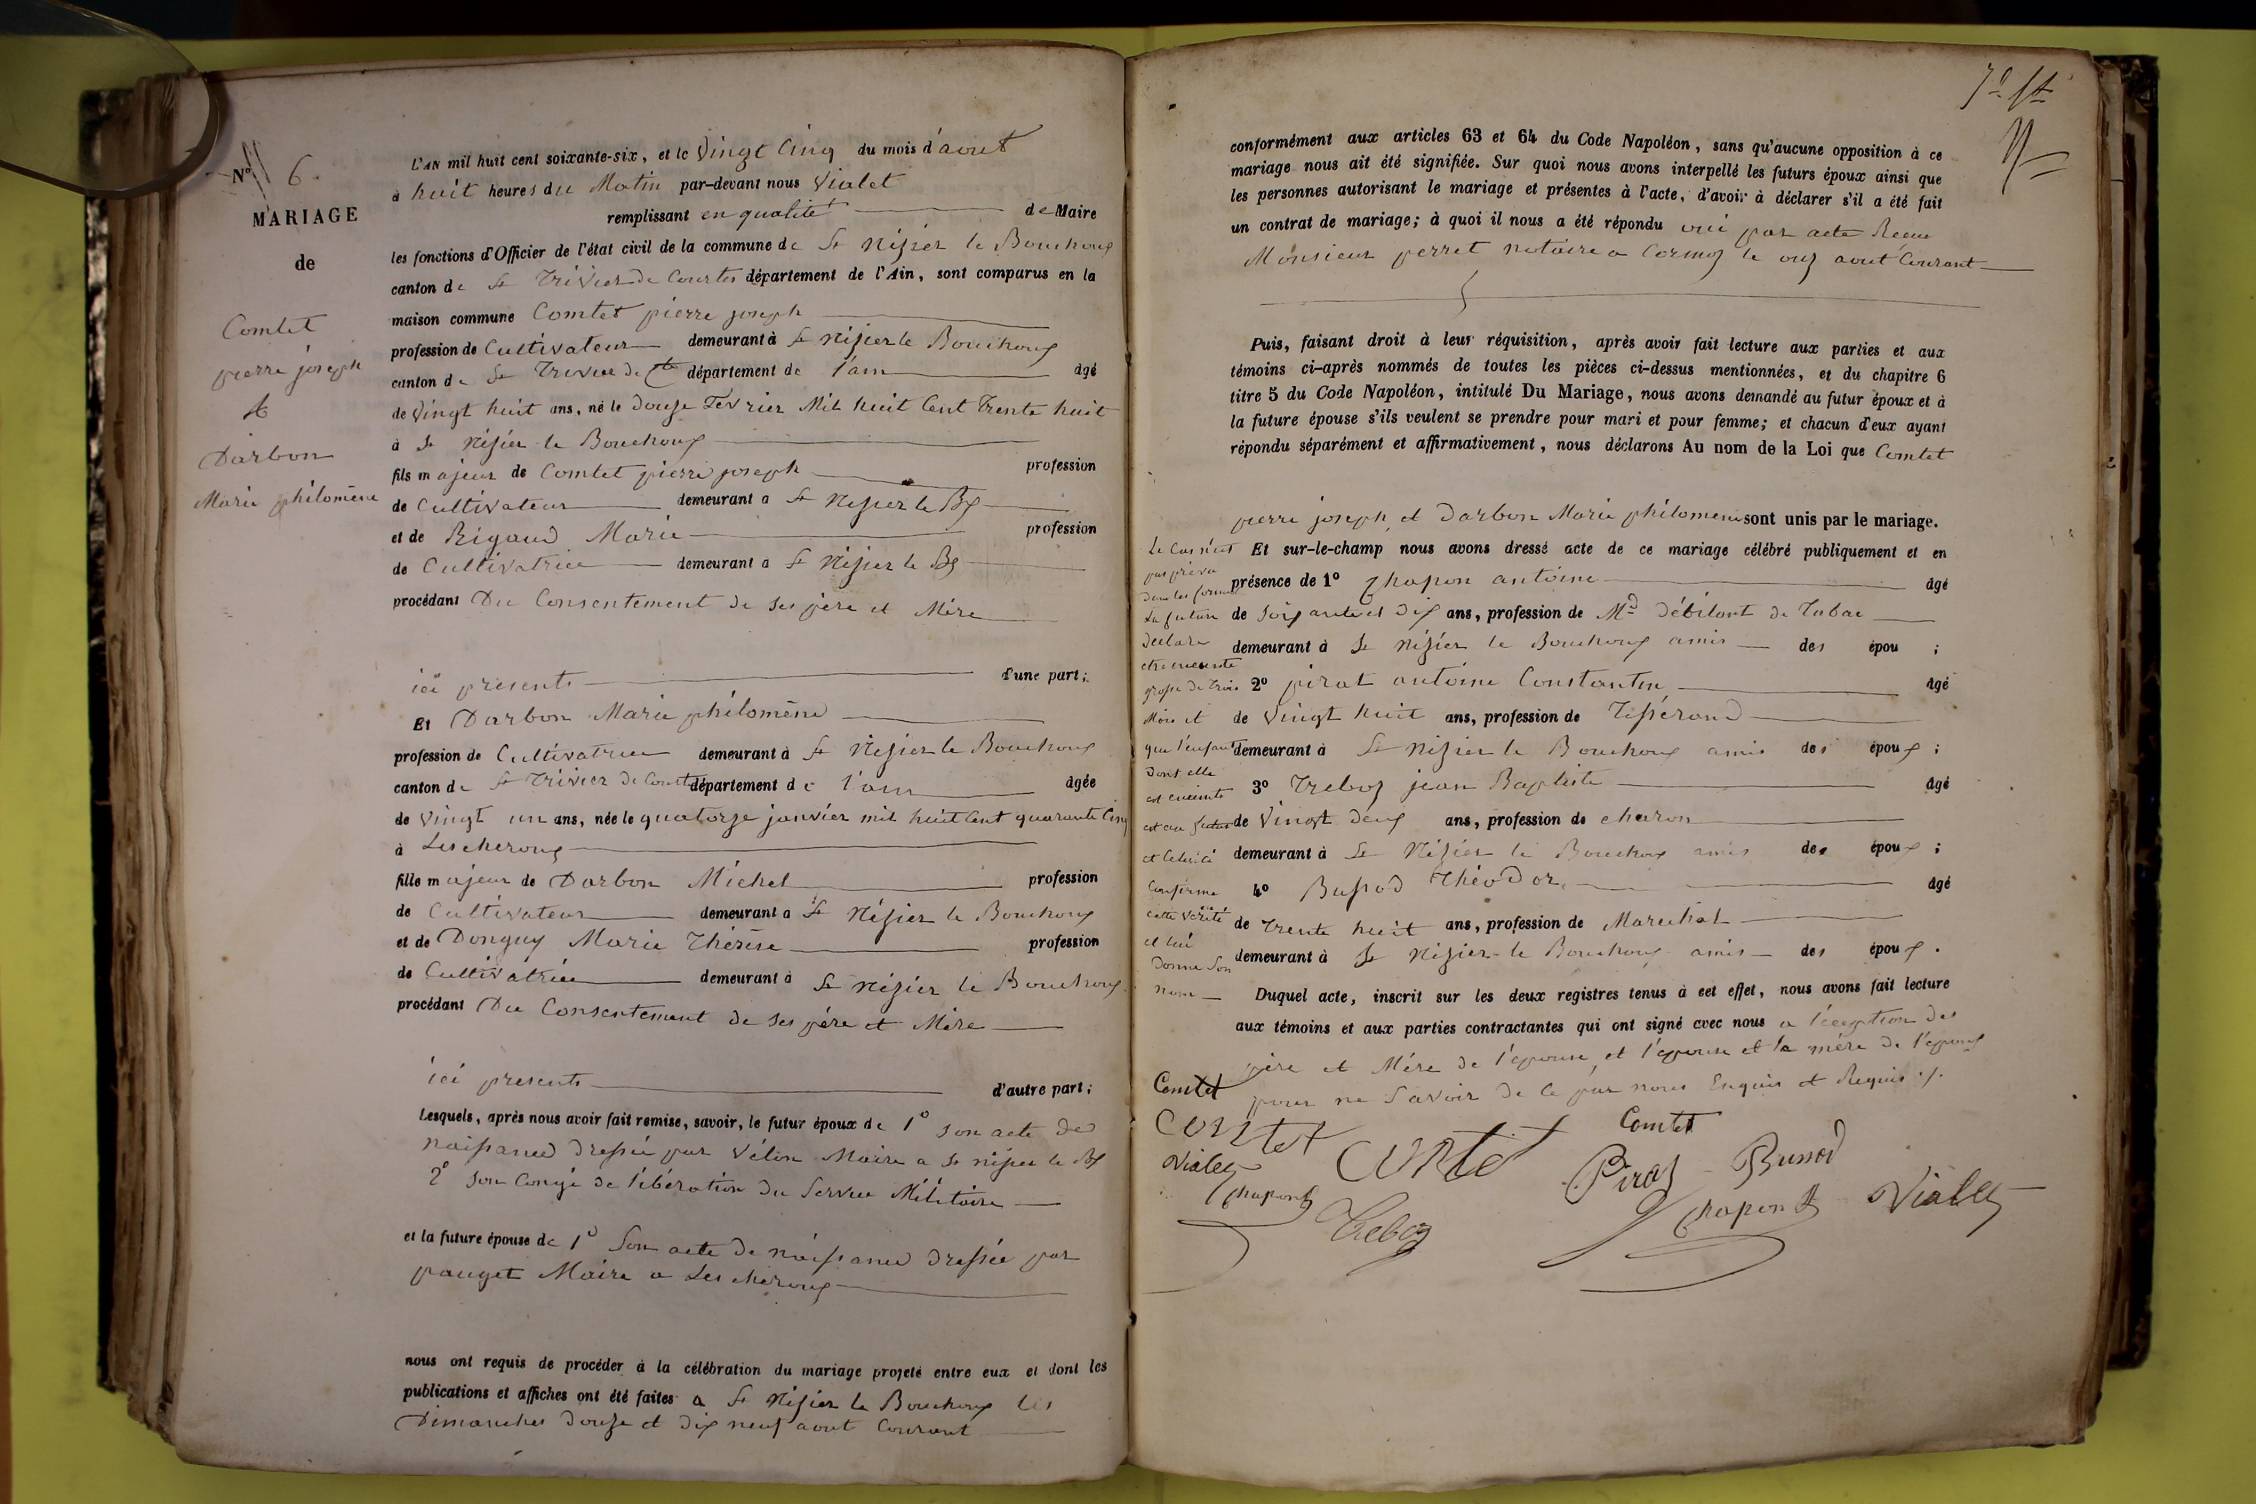 N° 6.
MARIAGE
de
Comtet
pierre joseph
&
Darbon
Marie philomène
L'AN mil huit cent soixante-six, et le Vingt Cinq du mois d'aout
à huit heures du Matin par-devant nous Vialet
remplissant en qualité de Maire
les fonctions d'Officier de l'état civil de la commune de St Nizier le Bouchoux
canton de St Trivier de Courtes département de l'Ain, sont comparus en la
maison commune Comtet pierre joseph
profession de Cultivateur demeurant à St Nizier le Bouchoux
canton de St Trivier de Ctes département de l'ain âgé
de Vingt huit ans, né le Douze Février Mil huit Cent Trente huit
à St Nizier le Bouchoux
fils majeur de Comtet pierre joseph profession
de Cultivateur demeurant a St Nizier le Bx
et de Rigaud Marie profession
de Cultivatrice demeurant a St Nizier le Bx
procédant Du Consentement de ses père et Mère
ici presents d'une part;
Et Darbon Marie philomène
profession de Cultivatrice demeurant à St Nizier le Bouchoux
canton de St Trivier de Courtes département de l'ain âgée
de Vingt un ans, née le quatorze janvier mil huit Cent quarante Cinq
à Lescheroux
fille majeur de Darbon Michel profession
de Cultivateur demeurant a St Nizier le Bouchoux
et de Donguy Marie Thérèse profession
de Cultivatrice demeurant à St Nizier le Bouchoux
procédant Du Consentement de ses père et Mère
ici presents d'autre part;
Lesquels, après nous avoir fait remise, savoir, le futur époux de 1° son acte de
naissance dressée par Vélon Maire a St nizier le Bx
2° Son Congé de libération du Service Militaire
et la future épouse de 1° Son acte de naissance dressée par
pauget Maire a Lescheroux
nous ont requis de procéder à la célébration du mariage projeté entre eux et dont les
publications et affiches ont été faites a St Nizier le Bouchoux les
Dimanches douze et dix neuf aout Courant
conformément aux articles 63 et 64 du Code Napoléon, sans qu'aucune opposition à ce
mariage nous ait été signifiée. Sur quoi nous avons interpellé les futurs époux ainsi que
les personnes autorisant le mariage et présentes à l'acte, d'avoir à déclarer s'il a été fait
un contrat de mariage; à quoi il nous a été répondu oui par acte Recue
Monsieur perret notaire a Cormoz le onz aout Courant
Puis, faisant droit à leur réquisition, après avoir fait lecture aux parties et aux
témoins ci-après nommés de toutes les pièces ci-dessus mentionnées, et du chapitre 6
titre 5 du Code Napoléon, intitulé Du Mariage, nous avons demandé au futur époux et à
la future épouse s'ils veulent se prendre pour mari et pour femme; et chacun d'eux ayant
répondu séparément et affirmativement, nous déclarons Au nom de la Loi que Comtet
pierre joseph et Darbon Marie philomene sont unis par le mariage.
Et sur-le-champ nous avons dressé acte de ce mariage célébré publiquement et en
présence de 1° Chapon antoine âgé
de Soixante et Dix ans, profession de Md Débitant de Tabac
demeurant à St Nizier le Bouchoux amis des épou ;
2° pirat antoine Constantin âgé
de Vingt huit ans, profession de Tisserand
demeurant à St Nizier le Bouchoux amis des époux ;
3° Treboz jean Baptiste âgé
de Vingt deux ans, profession de charon
demeurant à St Nizier le Bouchoux amis des époux ;
4° Bussod Théodor. âgé
de Trente huit ans, profession de Marechal
demeurant à St Nizier le Bouchoux amis des époux .
Duquel acte, inscrit sur les deux registres tenus à cet effet, nous avons fait lecture
aux témoins et aux parties contractantes qui ont signé avec nous a l'éxception des
père et Mère de l'epouse, et l'epouse et la mère de l'epoux
pour ne Savoir de ce par nous Enquis et Requis ./.
Le Cas n'est
pas prévu
dans les formes
La future
declare
etre enceinte
grosse de trois
Mois et
que l'enfant
dont elle
est enceinte
est au futur
et Celui ci
Confirme
cette Vérité
et lui
Donne Son
nom
Comtet
Comtet
Vialet
Chapon
Comtet
Treboz
Comtet
Pirat
Bussod
Chapon
Vialet